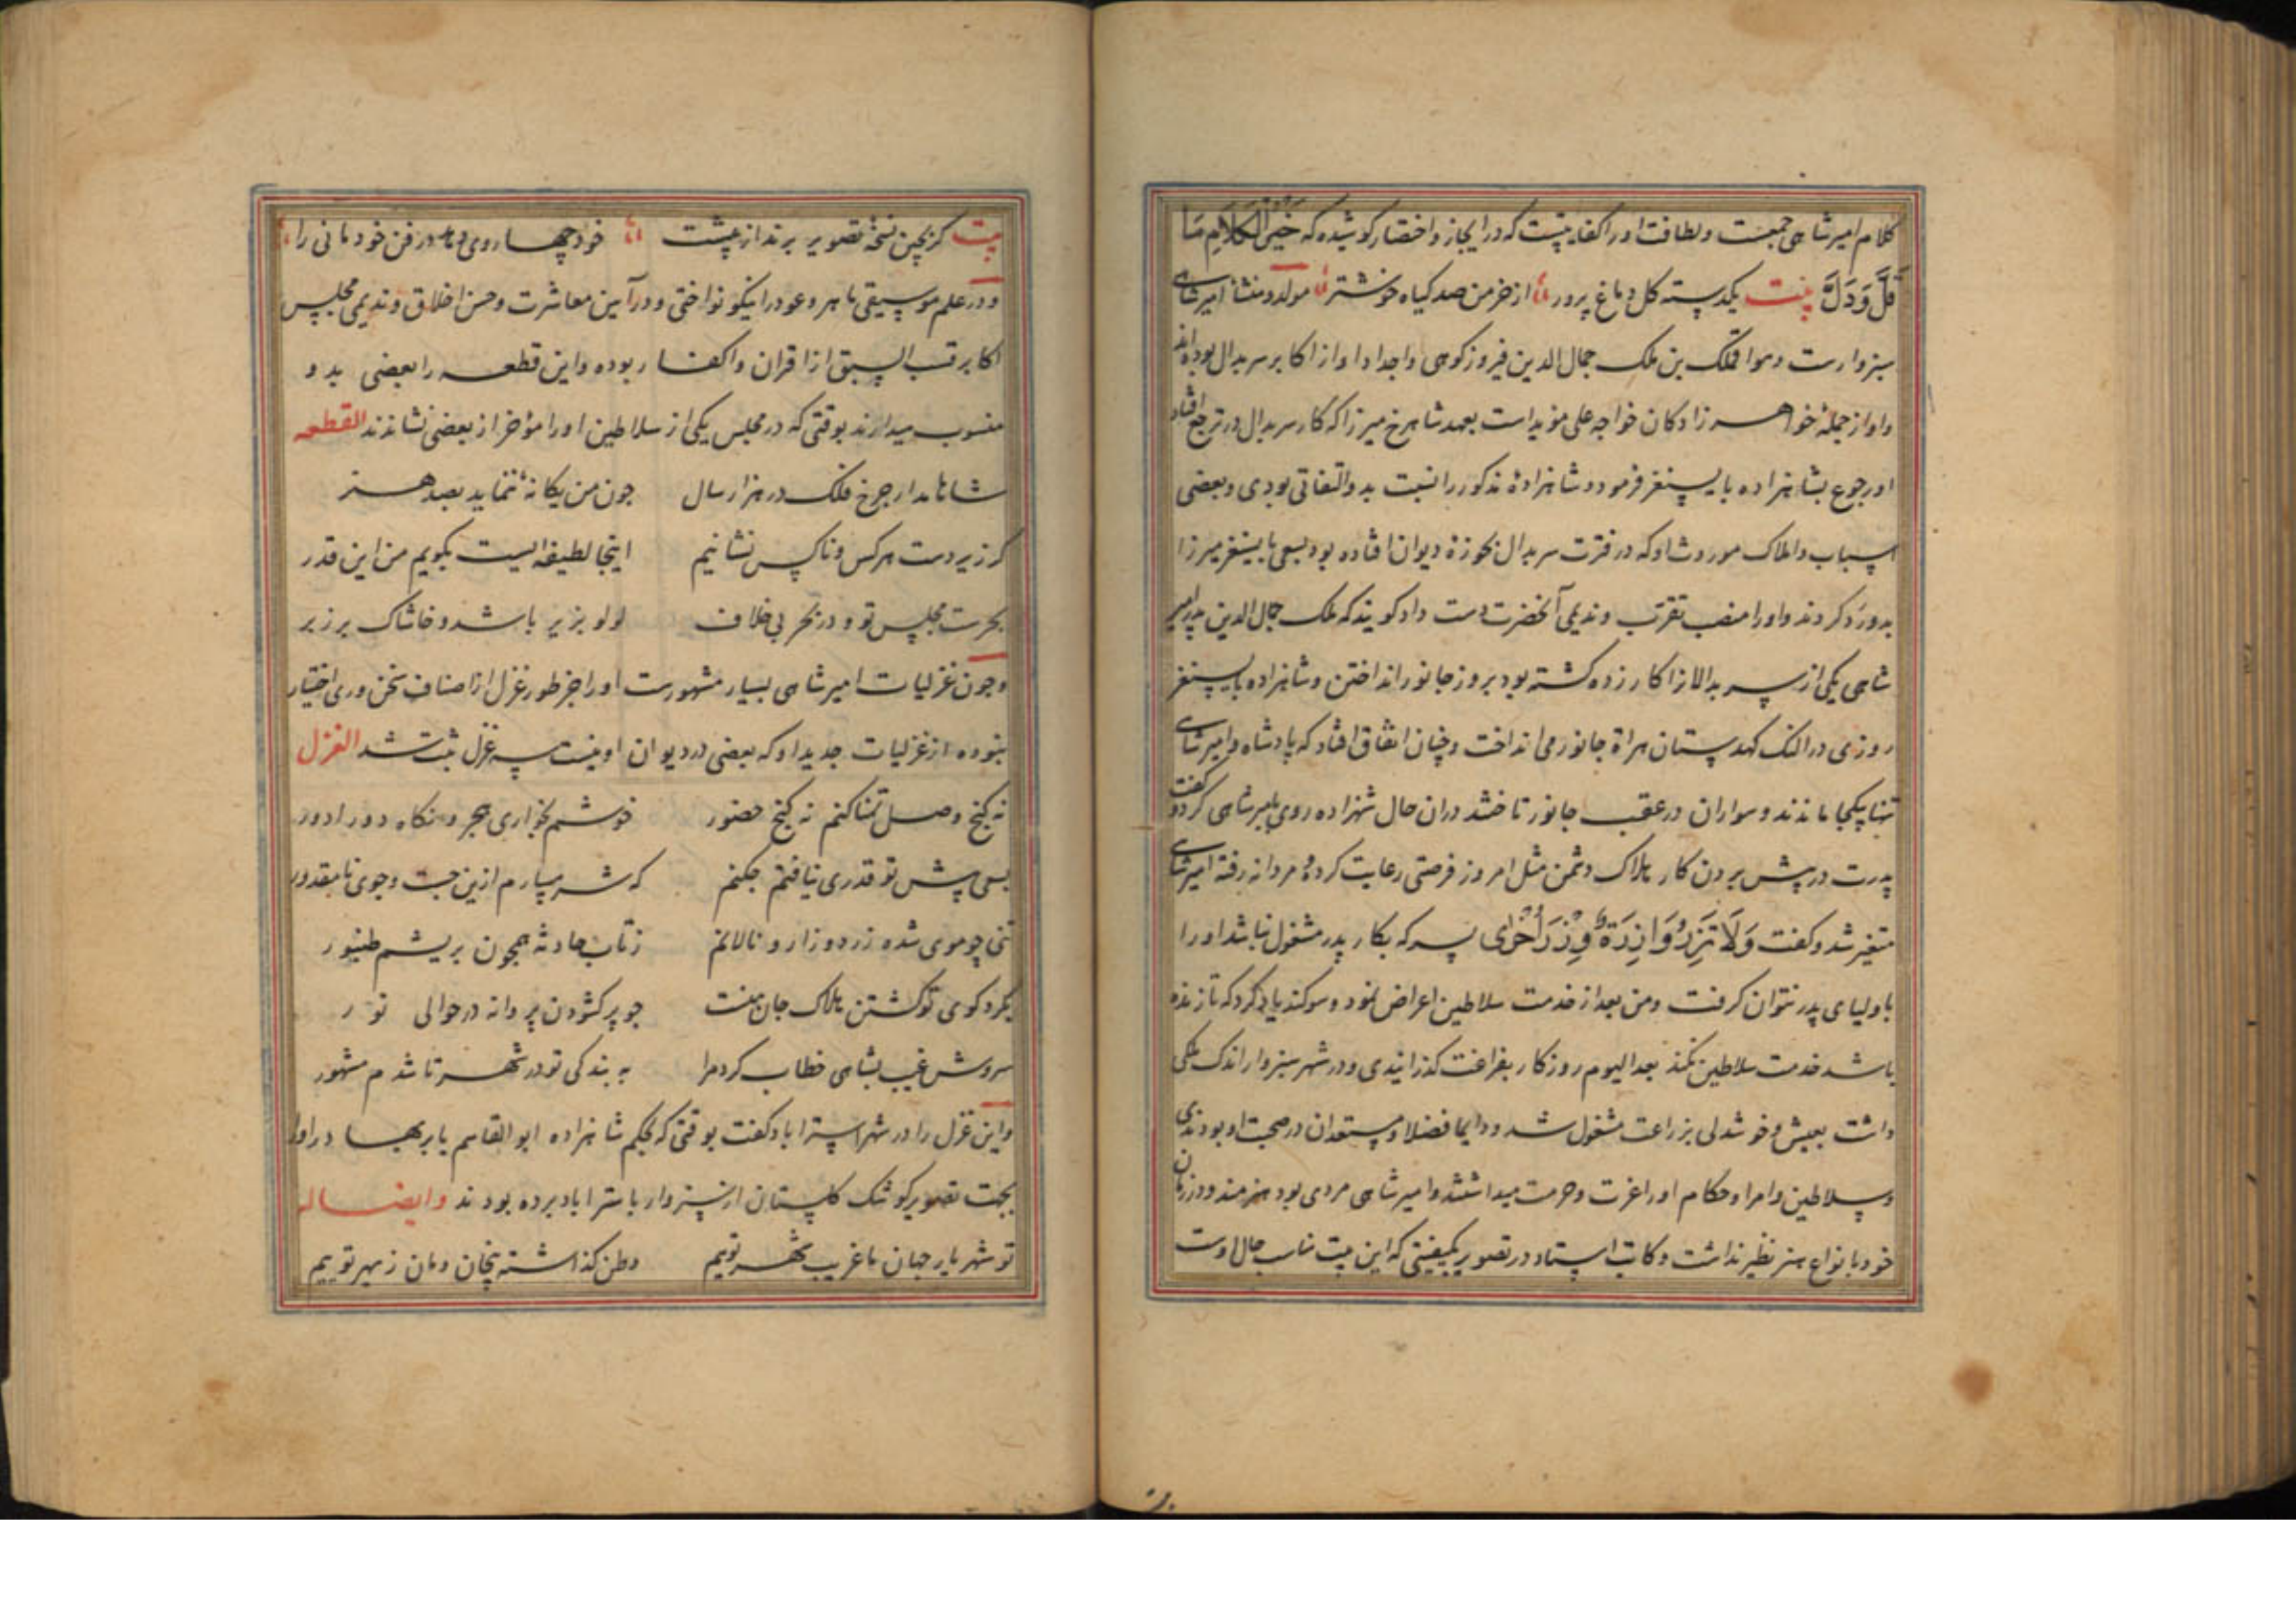 کلام امیر شاهی جمعست و لطافت او را کفایتیست که در ایجاز و اختصار کوشیده که خیر الکلام ما
قَلَّ وَدَلَّ بیت یکدسته کل دماغ پرور از خرمن صد کیاه خوشتر مولد و منشأ امیر شاهی
سبزوارست و هو آقملک بن ملک جمال الدین فیروزکوهی و اجداد او از اکابر سربدال بوده‌اند
و او از جملهٔ خواهر زادکان خواجه علی مؤید است بعهد شاهرخ میرزا که کار سربدال در تراجع افتاد
او رجوع بشاهزاده بایسنغر فرمود و شاهزادهٔ مذکور را نسبت بدو التفاتی بودی و بعضی
اسباب و املاک موروث او که در فترت سربدال بحوزهٔ دیوان افتاده بود بسعی بایسنغر میرزا
بدو رد کردند و او را منصب تقرب و ندیمی آنحضرت دست داد کویند که ملک جمال الدین پدر امیر
شاهی یکی از سربدالان را کارد زده کشته بود بروز جانور انداختن و شاهزاده بایسنغر
روزی در النک کهدستان هراة جانور می انداخت و چنان اتفاق افتاد که پادشاه و امیر شاهی
تنها یکجا ماندند و سواران در عقب جانور تاختند دران حال شهزاده روی بامیر شاهی کرد و گفت
پدرت در پیش بردن کار هلاک دشمن مثل امروز فرصتی رعایت کردهٔ مردانه رفته امیر شاهی
متغیر شد و کفت وَلَا تَزِرُ وَازِرَةٌ وِزْرَ أُخْرَی پسر که بکار پدر مشغول نباشد او را
باولیای پدر نتوان کرفت و من بعد از خدمت سلاطین اعراض نمود و سوکند یاد کرد که تا زنده
باشد خدمت سلاطین نکند بعد الیوم روزکار بفراغت کذرانیدی و در شهر سبزوار اندک ملکی
داشت بعیش و خوشدلی بزراعت مشغول شد و دایما فضلا و مستعدان در صحبت او بودندی
و سلاطین و امرا و حکام او را عزت و حرمت میداشتند و امیر شاهی مردی بود هنرمند و در زمان
خود بانواع هنر نظیر نداشت و کاتب استاد در تصویر بکیفیتی که این بیت مناسب حال اوست
بیت کر بچین نسخهٔ تصویر برند از پیشت خود چها روی دهد در فن خود مانی را
و در علم موسیقی ماهر و عود را نیکو نواختی و در آیین معاشرت و حسن اخلاق و ندیمی مجلس
اکابر قصب السبق از اقران و اکفا ربوده و این قطعه را بعضی بدو
منسوب میدارند بوقتی که در مجلس یکی از سلاطین او را مؤخر از بعضی نشاندند القطعه
شاها مدار چرخ فلک در هزار سال جون من یکانهٔ ننماید بصد هنر
کر زیر دست هر کس و ناکس نشانیم اینجا لطیفه ایست بکویم من این قدر
بحرست مجلس تو و در بحر بی خلاف لولو بزیر باشد و خاشاک بر زبر
وجون غزلیات امیر شاهی بسیار مشهورست او را جز طور غزل از اصناف سخن وری اختیار
نبوده از غزلیات جدید او که بعضی در دیوان او نیست سه غزل ثبت شد الغزل
نه کنج وصل تمنا کنم نه کنج حضور خوشم بخواری هجر و نکاه دورادور
بسی پیش تو قدری نیافتم چکنم که شرمسارم ازین جست وجوی نا مقدور
تنی چو موی شده زرد و زار و نالانم ز تاب حادثه همچون بریشم طنبور
بکرد کوی تو کشتن هلاک جان منست چو پر کشودن پروانه در حوالی نور
سروش غیب بشاهی خطاب کرد مرا به بندکی تو در شهر تا شدم مشهور
و این غزل را در شهر استراباد کفت بوقتی که بحکم شاهزاده ابوالقاسم بابر بهادر او را
بجهت تصویر کوشک کلستان از سبزوار باستراباد برده بودند وایضا له
تو شهریار جهان ما غریب شهر توییم وطن کذاشته بیخان و مان ز بهر توییم